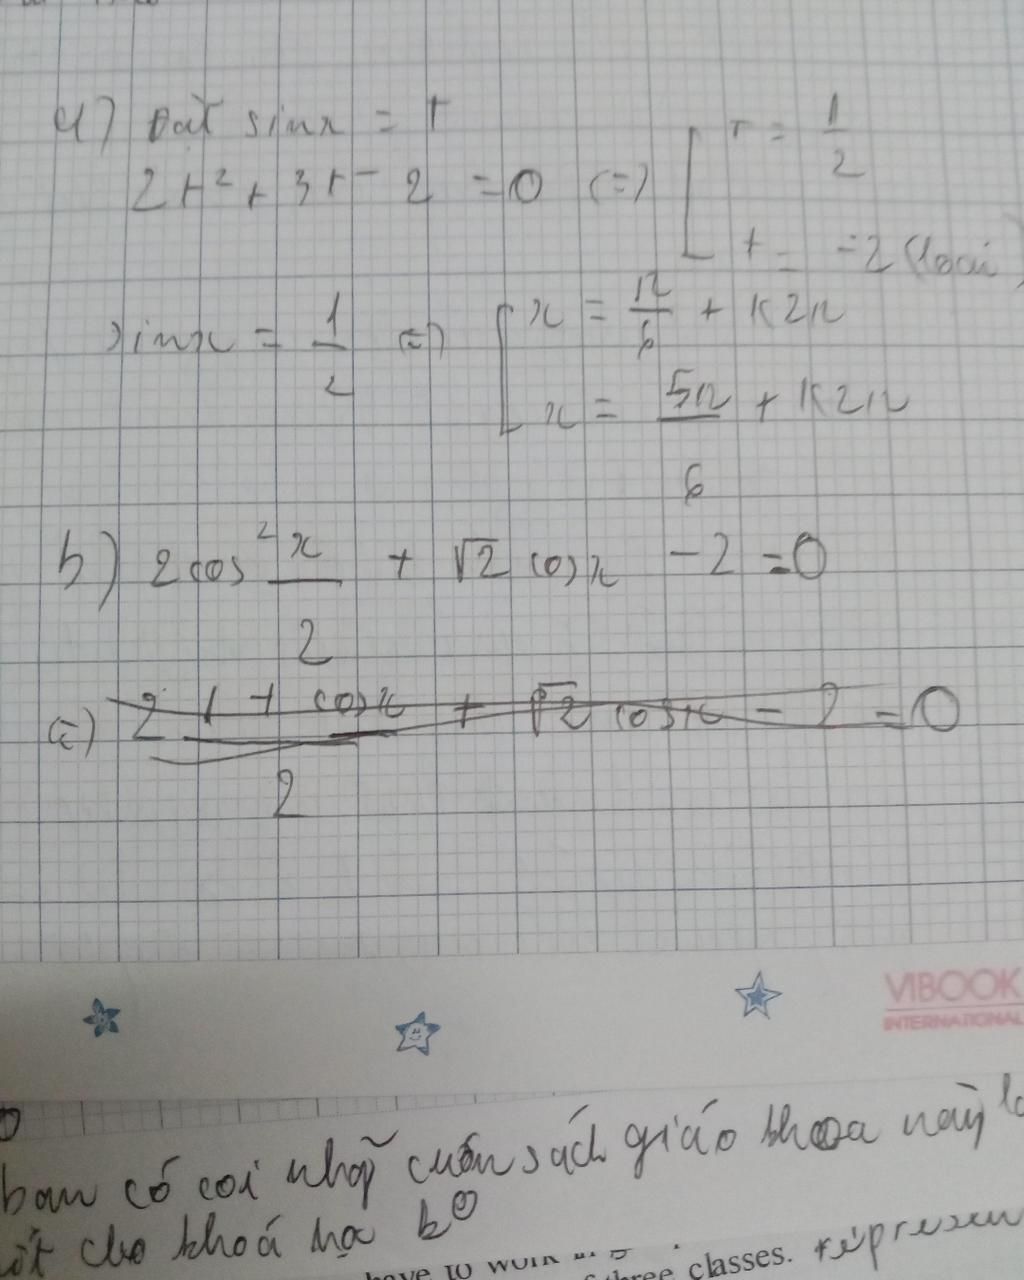 a) Đặt sinx = t
2t² + 3t - 2 = 0 (=) [ t = 1/2
t = -2 (loại)
sinx = 1/2 (=) [ x = π/6 + k2π
x = 5π/6 + k2π
b) 2cos² x/2 + √2 cosx - 2 = 0
(=) 2 1 + cosx/2 + √2 cosx - 2 = 0
VIBOOK
INTERNATIONAL
bạn có coi như cuốn sách giáo khoa này
cho khoá học k
have to work in
three classes.